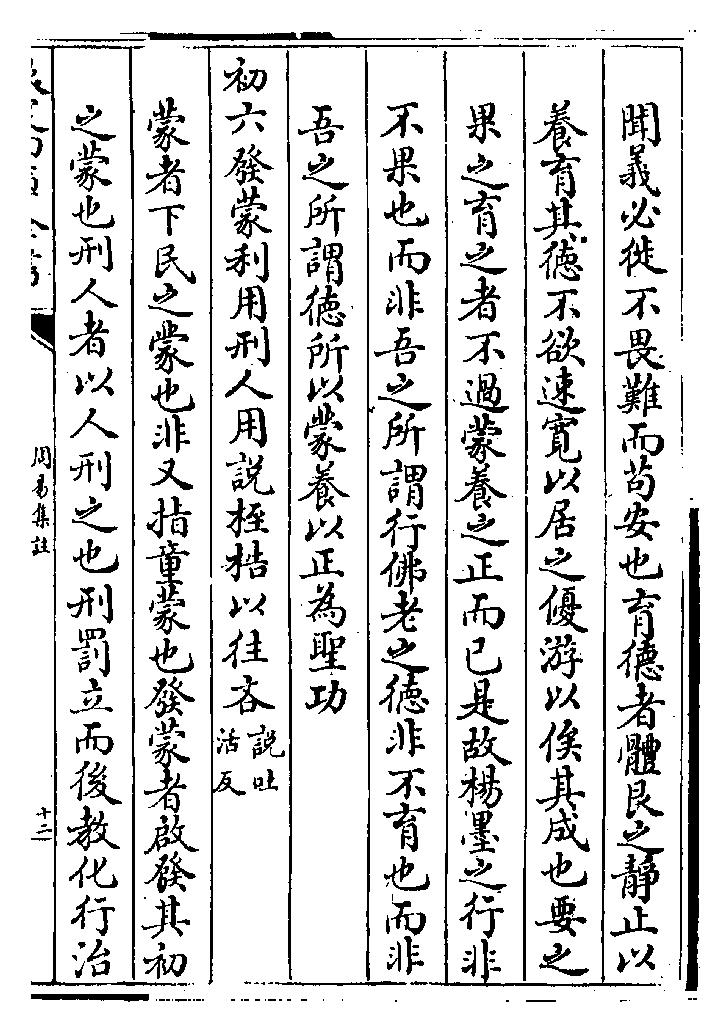 聞義必徙不畏難而苟安也育德者體艮之靜止以
養育其德不欲速寛以居之優游以俟其成也要之
果之育之者不過蒙養之正而已是故楊墨之行非
不果也而非吾之所謂行佛老之德非不育也而非
吾之所謂德所以蒙養以正為聖功
初六發蒙利用刑人用說桎梏以往吝說吐活反
蒙者下民之蒙也非又指童蒙也發蒙者啟發其初
之蒙也刑人者以人刑之也刑罰立而後教化行治
周易集註
十二